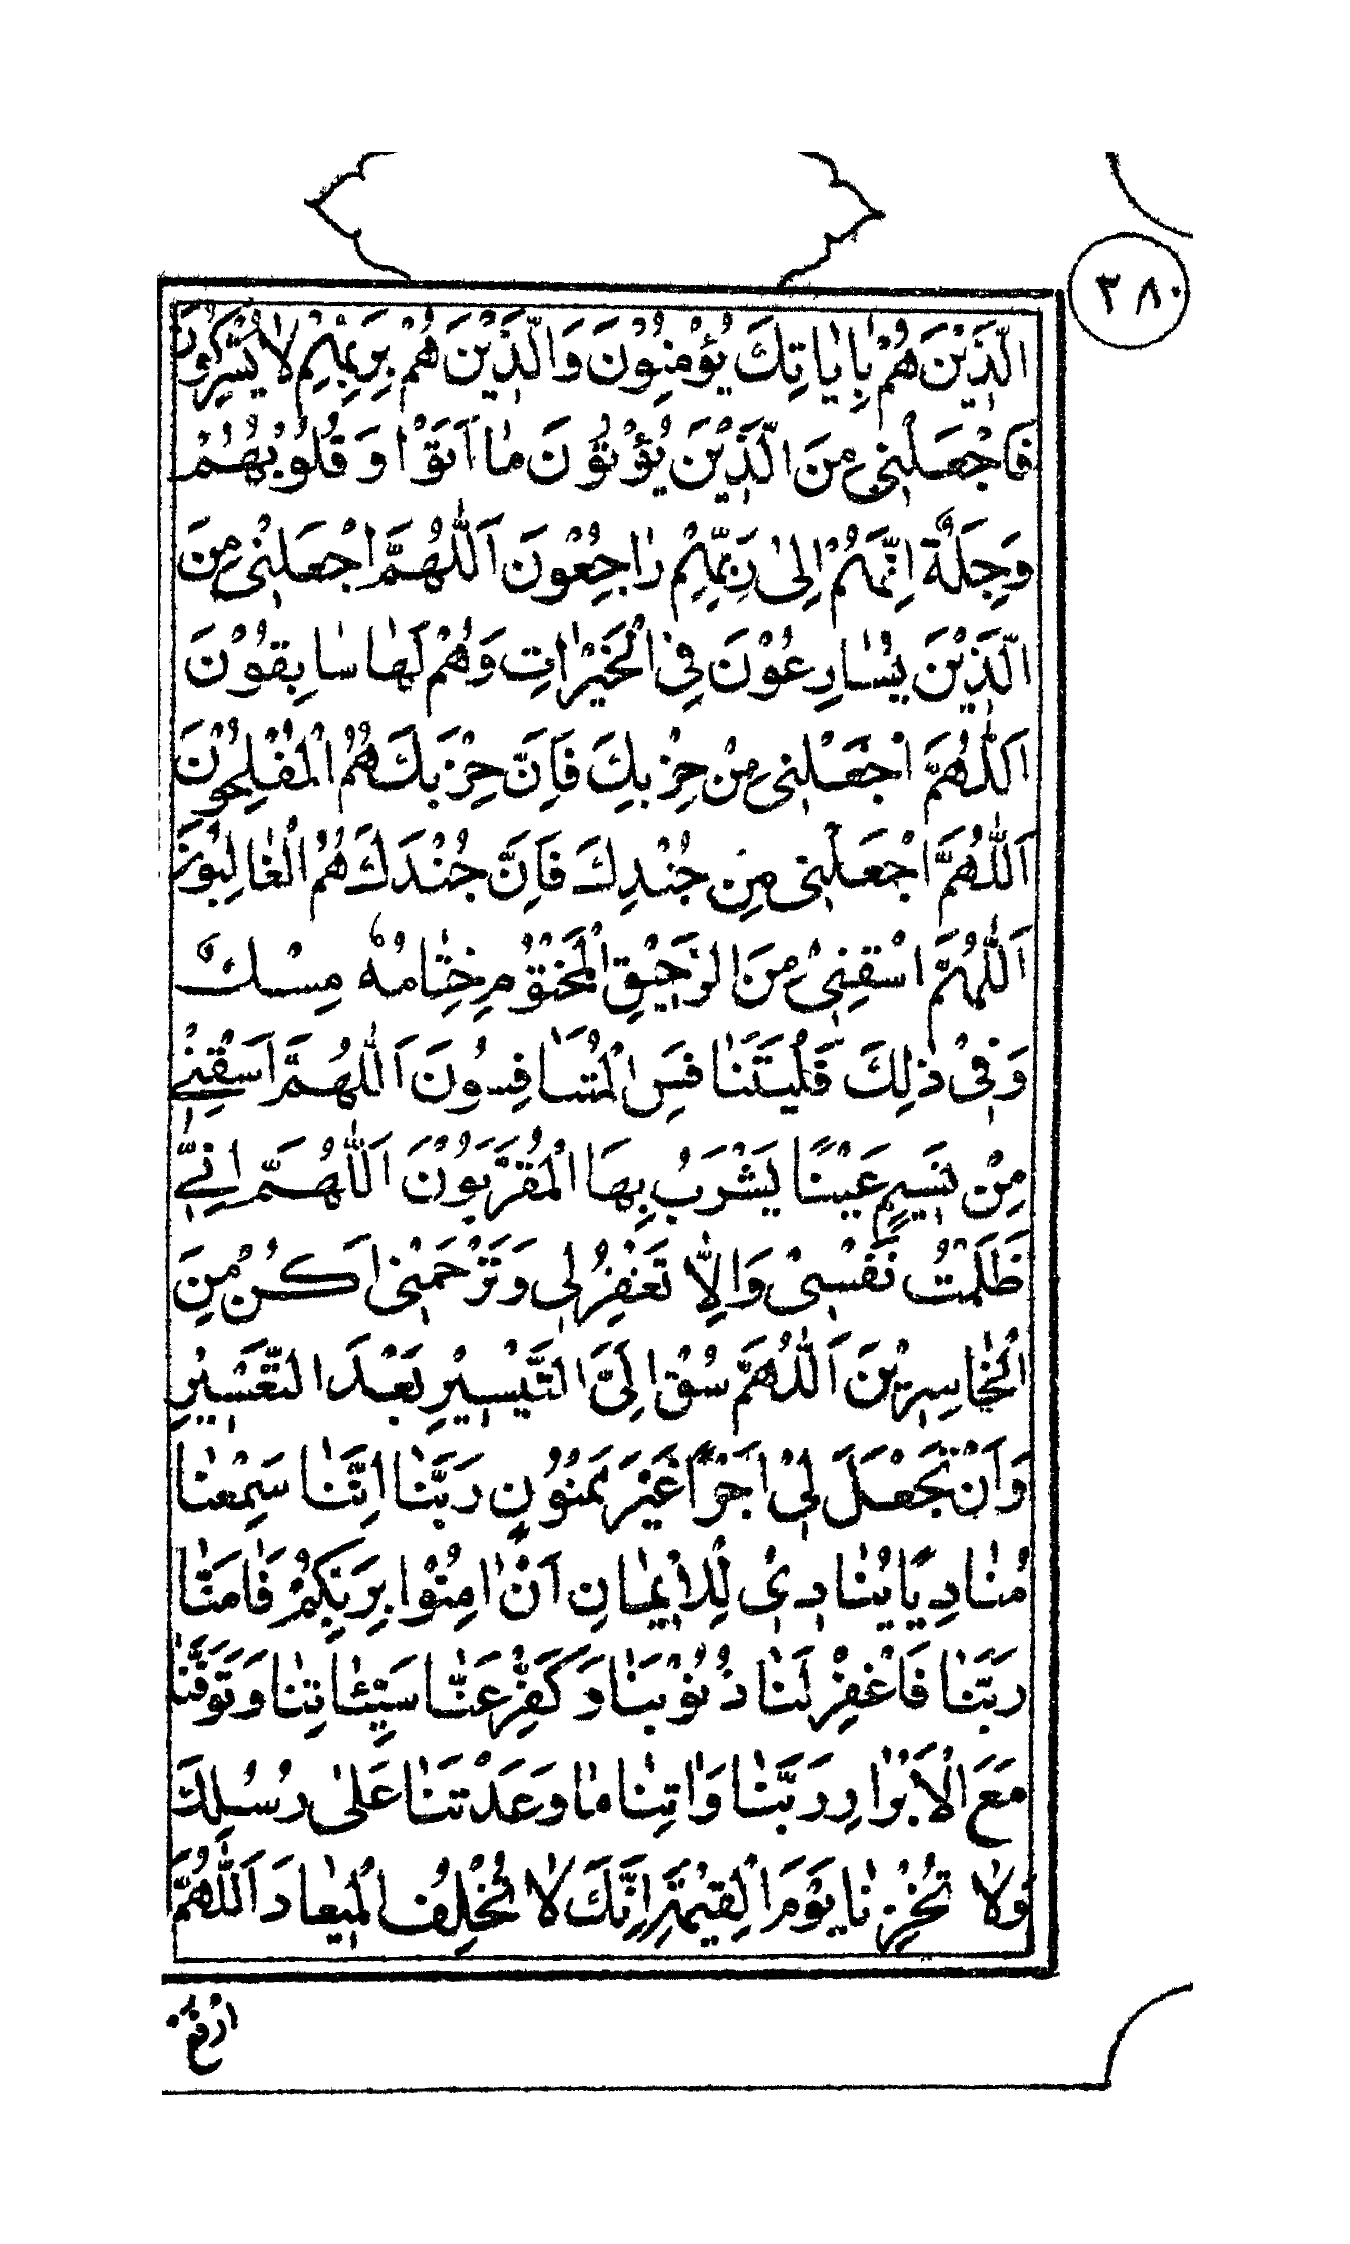 ٣٨٠
الَّذِيْنَ هُمْ بِاٰيٰاتِكَ يُؤْمِنُوْنَ وَالَّذِيْنَ هُمْ بِرَبِّهِمْ لاٰ يُشْرِكُونَ
فَاجْعَلْنِى مِنَ الَّذِيْنَ يُؤْتُوْنَ مٰا اٰتَوْا وَ قُلُوبُهُمْ
وَجِلَةٌ اِنَّهُمْ اِلىٰ رَبِّهِمْ رٰاجِعُوْنَ اَللّٰهُمَّ اجْعَلْنِى مِنَ
الَّذِيْنَ يُسٰارِعُوْنَ فِى الْخَيْرٰاتِ وَهُمْ لَهٰا سٰابِقُوْنَ
اَللّٰهُمَّ اجْعَلْنِى مِنْ حِزْبِكَ فَاِنَّ حِزْبَكَ هُمُ الْمُفْلِحُوْنَ
اَللّٰهُمَّ اجْعَلْنِى مِنْ جُنْدِكَ فَاِنَّ جُنْدَكَ هُمُ الْغٰالِبُوْنَ
اَللّٰهُمَّ اسْقِنِىْ مِنَ الرَّحِيْقِ الْمَخْتُوْمِ خِتٰامُهُ مِسْكٌ
وَفِىْ ذٰلِكَ فَلْيَتَنٰافَسِ الْمُتَنٰافِسُونَ اَللّٰهُمَّ اَسْقِنِىْ
مِنْ تَسْنِيمٍ عَيْنًا يَشْرَبُ بِهَا الْمُقَرَّبُوْنَ اَللّٰهُمَّ اِنِّىْ
ظَلَمْتُ نَفْسِىْ وَاِلاّٰ تَغْفِرْلِى وَتَرْحَمْنِى اَكُنْ مِنَ
الْخٰاسِرِيْنَ اَللّٰهُمَّ سُقْ اِلَىَّ التَّيْسِيْرِ بَعْدَ التَّعْسِيْرِ
وَاَنْ تَجْعَلَ لِىْ اَجْرًا غَيْرَ مَمْنُوْنٍ رَبَّنٰا اِنَّنٰا سَمِعْنٰا
مُنٰادِيًا يُنٰادِىْ لِلْاِيْمٰانِ اَنْ اٰمِنُوْا بِرَبِّكُمْ فَاٰمَنّٰا
رَبَّنٰا فَاغْفِرْ لَنٰا ذُنُوْبَنٰا وَكَفِّرْ عَنّٰا سَيِّئٰاتِنٰا وَتَوَفَّنٰا
مَعَ الْاَبْرٰارِ رَبَّنٰا وَاٰتِنٰا مٰا وَعَدْتَنٰا عَلىٰ رُسُلِكَ
وَلاٰ تُخْزِنٰا يَوْمَ الْقِيٰمَةِ اِنَّكَ لاٰ تُخْلِفُ الْمِيْعٰادَ اَللّٰهُمَّ
ارْفَعْ